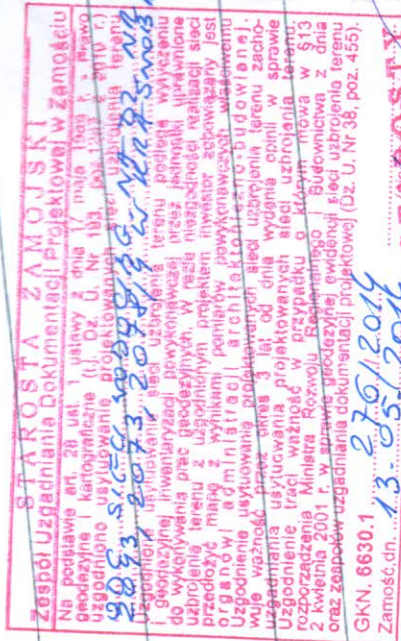 STAROSTA ZAMOJSKI
Zespół Uzgadniania Dokumentacji Projektowej w Zamościu
Na podstawie art. 28 ust. 1 ustawy z dnia 17 maja 1989 r. Prawo
geodezyjne i kartograficzne (t.j. Dz. U. Nr 193, poz. z 2010 r.)
uzgodniono usytuowanie projektowanej sieci uzbrojenia terenu
2073, 2078/3
Uzgodniona sieci uzbrojenia terenu podlega wytyczeniu
i geodezyjnej inwentaryzacji powykonawczej przez jednostki uprawnione
do wykonywania prac geodezyjnych. W razie niezgodności realizacji sieci
uzbrojenia terenu z uzgodnionym projektem inwestor zobowiązany jest
przedłożyć mapę z wynikami pomiarów powykonawczych właściwemu
organowi administracji architektoniczno-budowlanej.
Uzgodnienie usytuowania projektowanych sieci uzbrojenia terenu zacho-
wuje ważność przez okres 3 lat od dnia wydania opinii w sprawie
uzgadniania usytuowania projektowanych sieci uzbrojenia terenu.
Uzgodnienie traci ważność w przypadku o którym mowa w §13
rozporządzenia Ministra Rozwoju Regionalnego i Budownictwa z dnia
2 kwietnia 2001 r. w sprawie geodezyjnej ewidencji sieci uzbrojenia terenu
oraz zespołów uzgadniania dokumentacji projektowej (Dz. U. Nr 38, poz. 455).
GKN. 6630.1 276/2014
Zamość, dn. 13-05-/2014 STAROSTY